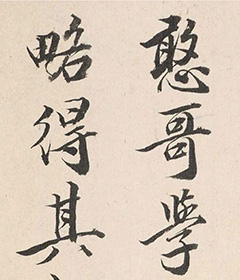 憨哥學
略得其